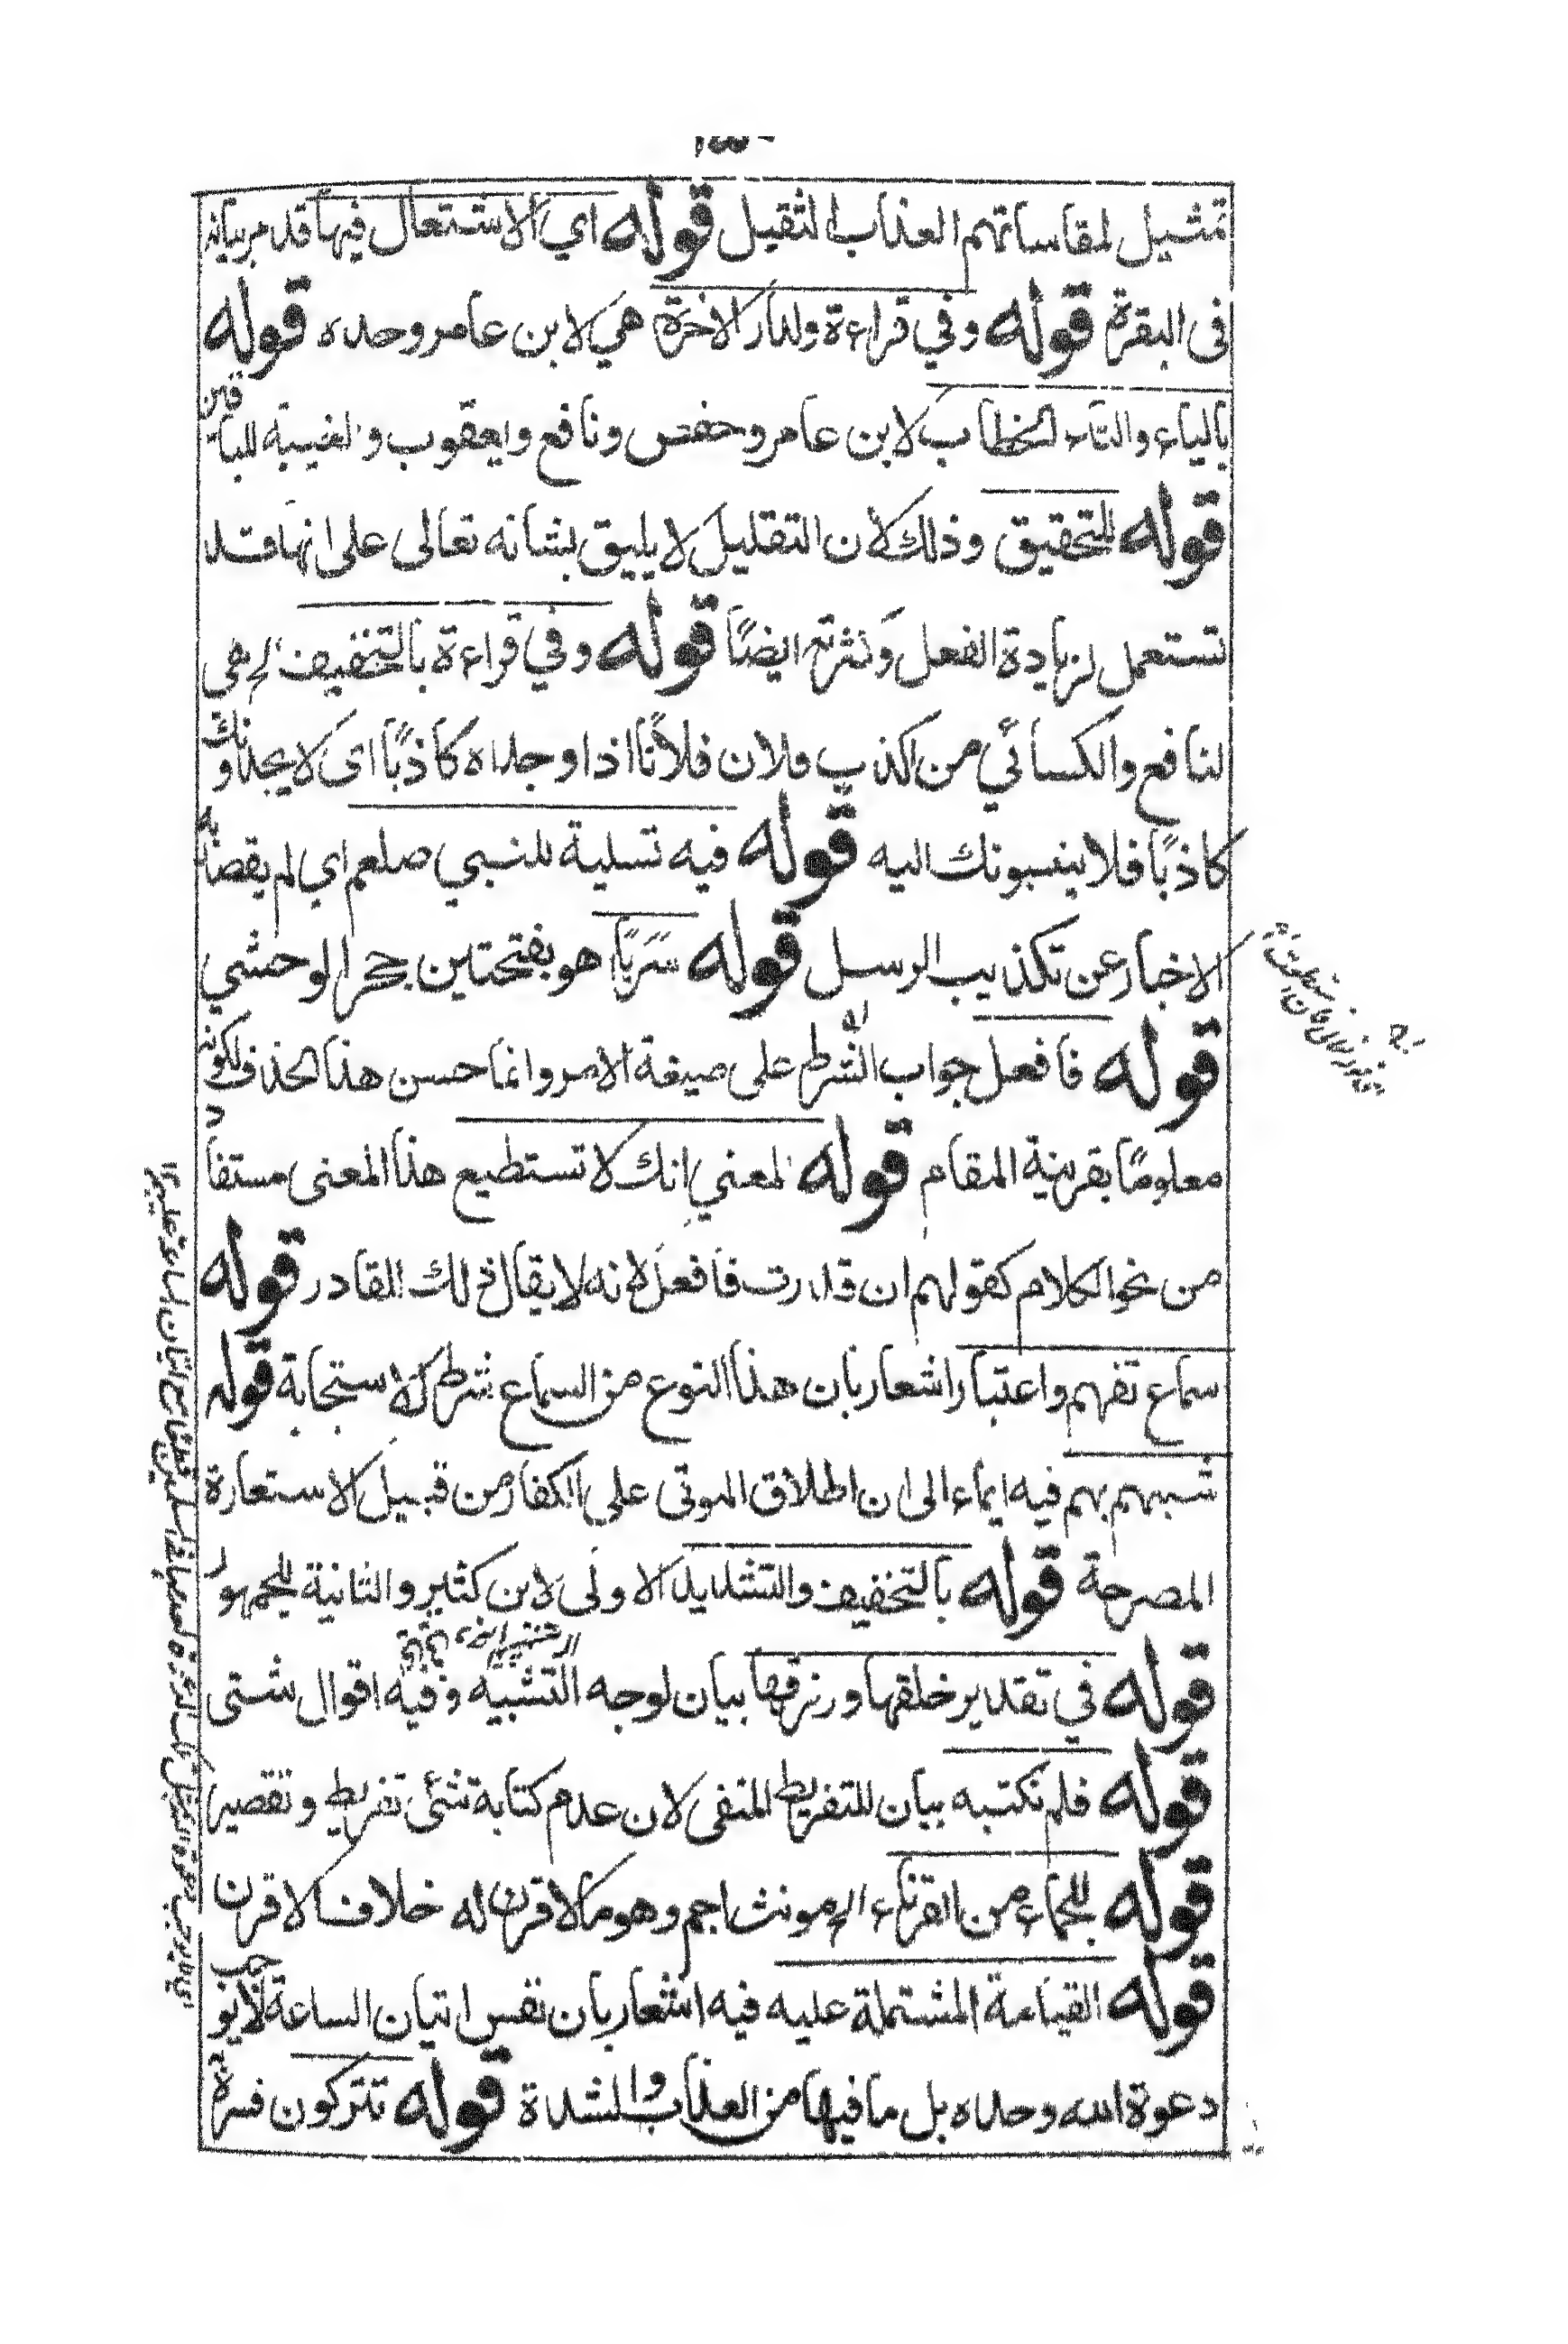 تمثيل لمقاساتهم العذاب الثقيل قوله اي الاشتغال فيها قد مر بيانه
في البقرة قوله وفي قراءة ولدار الاخرة هي لابن عامر وحده قوله
بالياء والتاء الخطاب لابن عامر وحفص ونافع ويعقوب والغيبة للباقين
قوله للتحقيق وذلك لان التقليل لا يليق بشانه تعالى على انها قد
تستعمل لزيادة الفعل وكثرته ايضًا قوله وفي قراءة بالتخفيف الخ هي
لنافع والكسائي من اكذب فلان فلانًا اذا وجده كاذبًا اى لا يجدونك
كاذبًا فلا ينسبونك اليه قوله فيه تسلية للنبي صلعم اي لم يقصد به
الاخبار عن تكذيب الرسل قوله سَرَبًا هو بفتحتين جحر الوحشي
قوله فافعل جواب الشرط على صيغة الامر وانما حسن هذا الحذف لكونه
معلومًا بقرينة المقام قوله المعني انك لا تستطيع هذا المعنى مستفاد
من نحو الكلام كقولهم ان قدرت فافعل لانه لا يقال ذلك القادر قوله
سماع تفهم واعتبار اشعار بان هذا النوع من السماع شرط الاستجابة قوله
شبههم بهم فيه ايماء الى ان اطلاق الموتى على الكفار من قبيل الاستعارة
المصرحة قوله بالتخفيف والتشديد الاولى لابن كثير والثانية للجمهور
قوله في تقدير خلقها ورزقها بيان لوجه التشبيه وفيه اقوال شتى
قوله فلم نكتبه بيان للتفريط المنفى لان عدم كتابة شئ تفريط وتقصير
قوله للجماء من القرناء الجم مونث اجم وهو ما لا قرن له خلاف الاقرن
قوله القيامة المشتملة عليه فيه اشعار بان نفس اتيان الساعة لا يوجب
دعوة الله وحده بل ما فيها من العذاب والشدة قوله تتركون فسره